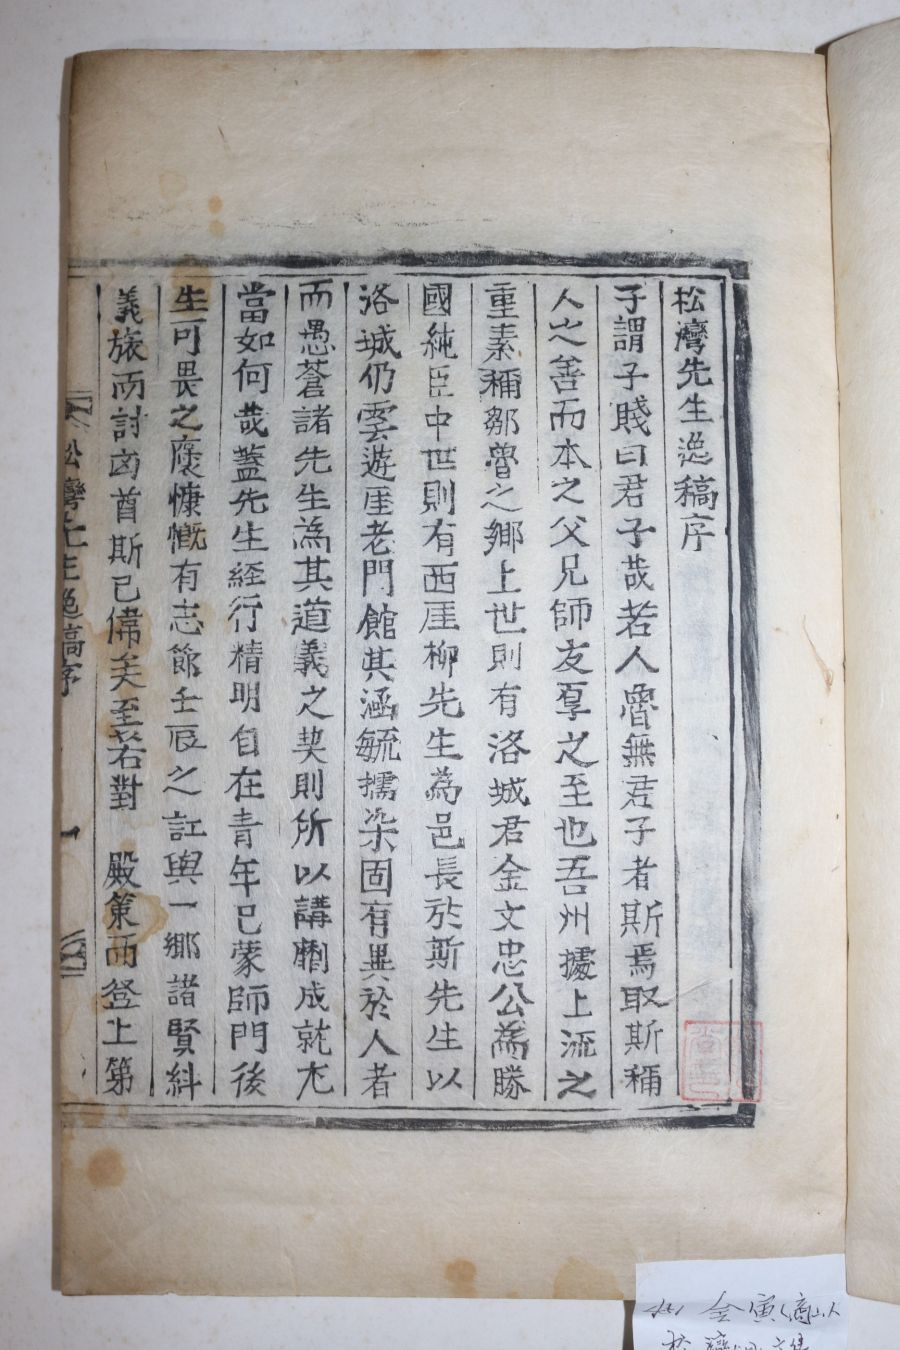 松灣先生逸稿序
子謂子賤曰君子哉若人魯無君子者斯焉取斯稱
人之善而本之父兄師友厚之至也吾州據上流之
重素稱鄒魯之鄉上世則有洛城君金文忠公爲勝
國純臣中世則有西厓柳先生為邑長於斯先生以
洛城仍雲遊厓老門館其涵毓擩染固有異於人者
而愚蒼諸先生為其道義之契則所以講劘成就尤
當如何哉蓋先生經行精明自在青年已蒙師門後
生可畏之褒慷慨有志節壬辰之訌與一鄉諸賢糾
義旅而討凶酋斯已偉矣至若對 殿策而登上第
松灣先生逸稿序 一
金寅